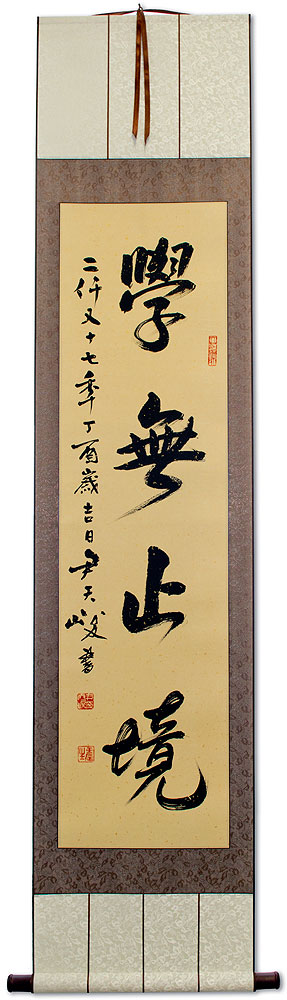 學無止境
二仟又十七年丁酉歲吉日尹天峻書